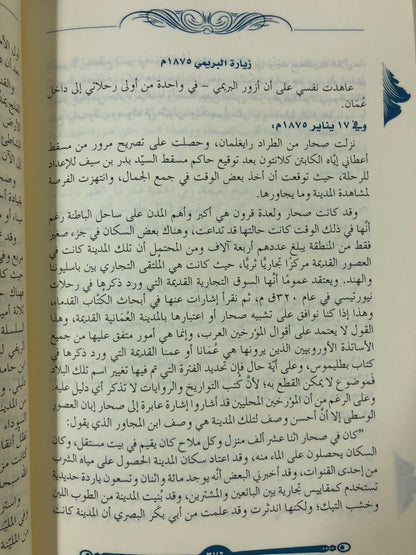 زيارة البريمي ١٨٧٥م
عاهدت نفسي على أن أزور البريمي – في واحدة من أولى رحلاتي إلى داخل
عُمَان.
وفي ١٧ يناير ١٨٧٥م:
نزلت صحار من الطراد رايغلمان، وحصلت على تصريح مرور من مسقط
أعطاني إياه الكابتن كلانتون بعد توقيع حاكم مسقط السيّد بدر بن سيف للإعداد
للرحلة، حيث توقعت أن أخذ بعض الوقت في جمع الجمال، وانتهزت الفرصة
لمشاهدة المدينة وما يجاورها.
وقد كانت صحار ولعدة قرون هي أكبر وأهم المدن على ساحل الباطنة رغم
أنّها في ذلك الوقت كانت حالتها قد تداعت، وهناك بعض السكان في جزء صغير
فقط من المنطقة يبلغ عددهم أربعة آلاف، ومن المحتمل أن تلك المدينة كانت في
العصور القديمة مركزًا تجاريًا ثريًّا، حيث كانت هي الملتقى التجاري بين باسليوننا
والهند. ويعتقد عمومًا أنها السوق التجارية القديمة والتي ورد ذكرها في رحلات
نيورتيسي في عام ٣٢٠ق م، ثم نقرأ إشارات عنها في أبحاث الكتّاب القدماء،
وهذا إذا كنا نوافق على تشبيه صحار أو اعتبارها بالمدينة العُمَانية القديمة، وهذا
القول لا يعتمد على أقوال المؤرخين العرب، وإنما هي أمور متفق عليها من
الأساتذة الأوروبيين الذين يرونها هي عُمَانا أو عمنا القديمة التي ورد ذكرها في
كتاب بطليموس، وعلى أيّة حال فإن تحديد الفترة التي تم فيها تغيير اسم تلك البلاد
فَموضوع لا يمكن القطع به؛ لأنّ كتب التواريخ والروايات لا تذكر أي دليل عليه.
وعلى الرغم من أن المؤرخين المحليين قد أشاروا إشارة عابرة إلى صحار إبان العصور
الوسطى إلّا أنّ أحسن وصف لتلك المدينة هي وصف ابن المجاور الذي يقول:
"كان في صحار اثنا عشر ألف منزل وكل ملاح كان يقيم في بيت مستقل، وكان
السكان يحصلون على الماء منه، وقد اعتاد سكان المدينة الحصول على مياه الشرب
من إحدى القنوات، وقد أخبرني البعض أنّه يوجد مائة واثنان وتسعون ياردة حديدية
تستخدم كمقايس تجارية بين البائعين والمشترين، وقد بُنيت المدينة من الطوب اللبن
وخشب التيك؛ ولكنها اندثرت وقد علمت من أبي بكر البصري أن المدينة كانت